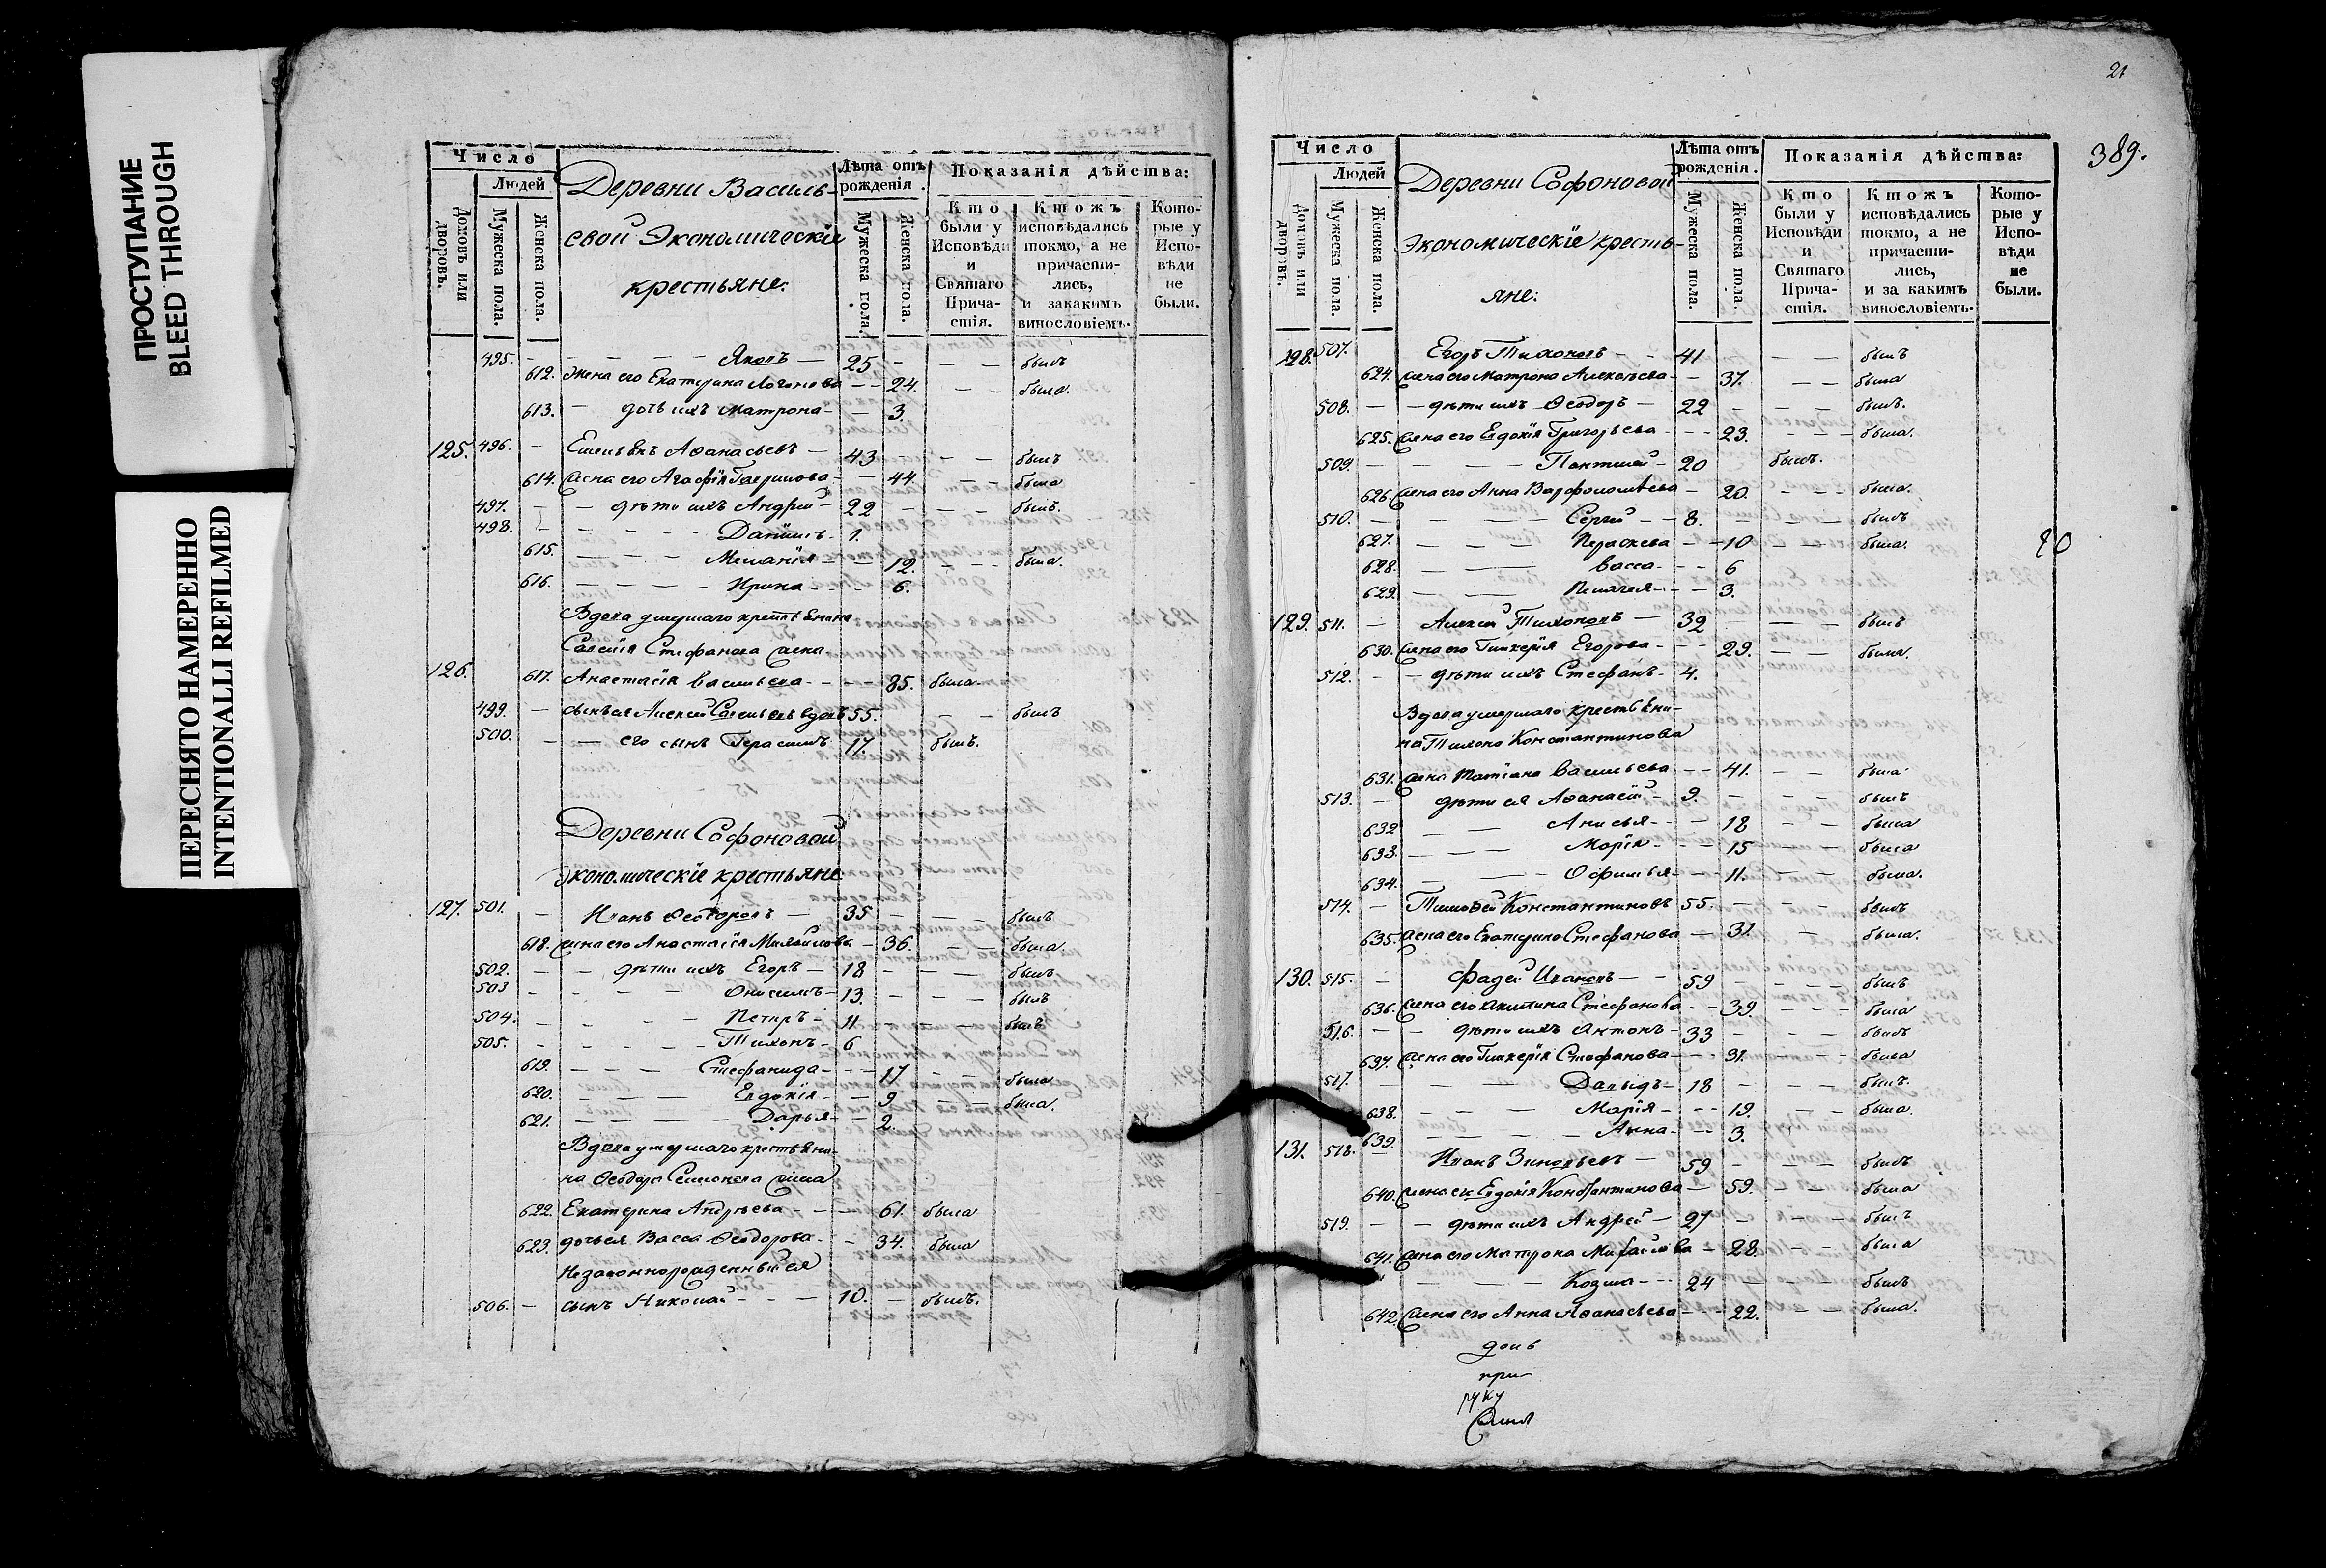 ПРОСТУПАНИЕ
BLEED THROUGH
ПЕРЕСНЯТО НАМЕРЕННО
INTENTIONALLI REFILMED
Число
Людей
Домовъ или дворовъ.
Мужеска пола.
Женска пола.
Деревни Василь-
евой Экономическіе
крестьяне:
Лѣта отъ рожденія.
Мужеска пола.
Женска пола.
Показанія дѣйства:
Кто были у Исповѣди и Святаго Причастія.
Ктожъ исповѣдались токмо, а не причастились, и закакимъ винословіемъ.
Которые у Исповѣди не были.
495. Яковъ 25 былъ
612. жена его Екатерина Логинова 24. была.
613. дочь ихъ Матрона 3.
125. 496. Емельянъ Аѳанасьевъ 43 былъ
614. жена его Агафія 44. была
497. дѣти ихъ Андрей 22 былъ.
498. Даніилъ 1.
615. Меланія 12. была.
616. Ирина 6.
Вдова умершаго крестьянина
Савелія Стефанова жена
126. 617. Анастасія Васильева 85. была
499. сынъ ея Алексей Савельевъ вдовъ 55. былъ
500. его сынъ Герасимъ 17. былъ.
Деревни Софоновой
экономическіе крестьяне:
127. 501. Иванъ Ѳеодоровъ 35 былъ
618. жена его Анастасія Михайлова 36. была.
502. дѣти ихъ Егоръ 18 былъ
503 Онисимъ 13. былъ
504. Петръ 11 былъ
505. Тихонъ 6
619. Стефанида 17 была
620. Евдокія 9 была.
621. Дарья 2.
Вдова умершаго крестьяни-
на Ѳеодора Семионова жена
622. Екатерина Андрѣева 61. была
623. дочь ея Васса Ѳеодорова 34. была
Незаконнорожденный ея
506. сынъ Николай 10. былъ.
21
389.
Число
Людей
Домовъ или дворовъ.
Мужеска пола.
Женска пола.
Деревни Софоновой
Экономическіе кресть-
яне:
Лѣта отъ рожденія.
Мужеска пола.
Женска пола.
Показанія дѣйства:
Кто были у Исповѣди и Святаго Причастія.
Ктожъ исповѣдались токмо, а не причастились, и за какимъ винословіемъ.
Которые у Исповѣди не были.
128. 507. Егоръ Тихоновъ 41 былъ
624. жена его Матрона Алексѣева 37. была
508. дѣти ихъ Ѳеодоръ 22 былъ.
625. жена его Евдокія Григорьева 23. была.
509. Пантилей 20 былъ.
626. жена его Анна Варфоломѣева 20. была.
510. Сергей 8. былъ
627. Параскева 10 была.
628. Васса 6
629. Пелагея 3.
129. 511. Алексей Тихоновъ 32 былъ
630. жена его Гликерія Егорова 29. была.
512. дѣти ихъ Стефанъ 4.
Вдова умершаго крестьяни-
на Тихона Константинова
631. жена Татіана Васильева 41. была
513. дѣти ея Аѳанасій 9. былъ
632 Анисья 18 была
633. Марія 15 была
634. Офимья 11. была.
514. Тимоѳей Константиновъ 55. былъ
635. жена его Екатерина Стефанова 31. была.
130. 515. Фадей Ивановъ 59 былъ
636. жена его Акилина Стефанова 39. была
516. дѣти ихъ Антонъ 33 былъ
637. жена его Гликерія Стефанова 31. была
517. Давыдъ 18 былъ.
638. Марія 19. была.
639. Анна 3.
131. 518. Иванъ Зиновьевъ 59 былъ
640. жена ево Евдокія Константинова 59. была
519. дѣти ихъ Андрей 27 былъ
641. жена его Матрона Михайлова 28. была
Козма 24 былъ
642. жена его Анна Аѳанасьева 22. была.
при
руку